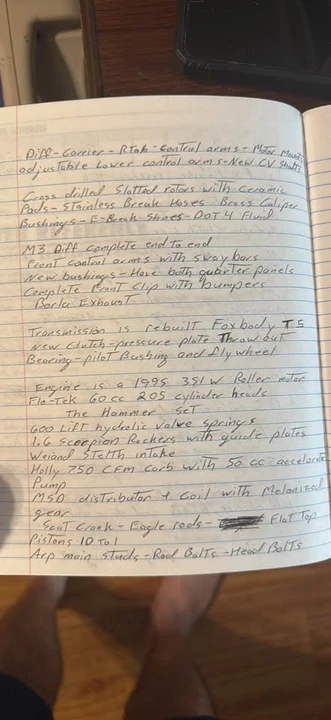 Diff-Carrier-RTab-control arms-Motor Mounts
adjustable Lower control arms-New CV Shafts
Cross drilled Slotted rotors with Ceramic
Pads-Stainless Break Hoses Brass Caliper
Bushings-E-Break Shoes-DOT 4 Fluid
M3 Diff Complete end to end
Front control arms with sway bars
New bushings-Have both quarter panels
Complete Front Clip with bumpers
Borla Exhaust
Transmission is rebuilt Foxbody T5
New Clutch-pressure plate Throw out
Bearing-pilot Bushing and fly wheel
Engine is a 1995 351 W Roller motor
Flo-Tek 60 cc 205 cylinder heads
The Hammer SeT
600 Lift hydrolic valve springs
1.6 Scorpion Rockers with guide plates
Weiand STelth intake
Holly 750 CFM carb with 50 cc accelerator
Pump
MSD distributor + Coil with Melonized
gear
Scat Crank-Eagle rods- Flat Top
Pistons 10 To 1
Arp main studs-Rod Bolts-Head Bolts